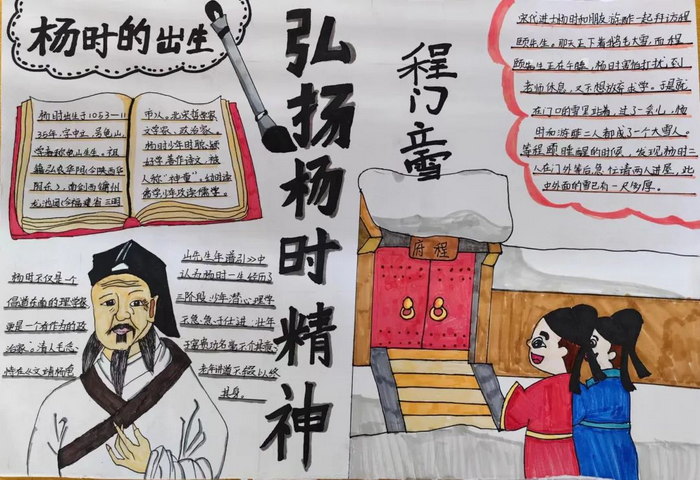 杨时的出生
杨时出生于1053—11
35年，字中立，号龟山，
学者称龟山先生，祖
籍弘农华阴（今陕西华
阴东），南剑西镛州
龙池团（今福建省三明
市）人，北宋哲学家
文学家、政治家
杨时少年时聪颖
好学善作诗文，被
人称“神童”，幼时读
儒学少年攻读儒学。
弘扬杨时精神
程门立雪
宋代进士杨时和朋友游酢一起拜访程
颐先生。那天正下着鹅毛大雪，而程
颐先生正在午睡，杨时害怕打扰到
老师休息，又不想放弃求学。于是就
在门口的雪里站着，过了一会儿，杨
时和游酢二人都成了个大雪人。
等程颐睡醒的时候，发现杨时二
人在门外等后急忙请两人进屋，此
时外面的雪已有一尺多厚。
程府
杨时不仅是一个
倡道东南的理学家
更是一个有作为的政
治家”，清人毛念
恃在《文靖杨龟
山先生年谱引》中
认为杨时一生经历了
三阶段，少年潜心理学
不急急于仕进，壮年
老年讲道不辍以终
其身。